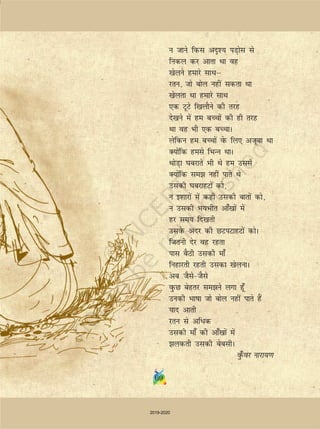 न जाने किस अदृश्य पड़ोस से
निकल कर आता था वह
खेलने हमारे साथ–
रतन, जो बोल नहीं सकता था
खेलता था हमारे साथ
एक टूटे खिलौने की तरह
देखने में हम बच्चों की ही तरह
था वह भी एक बच्चा।
लेकिन हम बच्चों के लिए अजूबा था
क्योंकि हमसे भिन्न था।
थोड़ा घबराते भी थे हम उससे
क्योंकि समझ नहीं पाते थे
उसकी घबराहटों को,
न इशारों में कही उसकी बातों को,
न उसकी भयभीत आँखों में
हर समय दिखती
उसके अंदर की छटपटाहटों को।
जितनी देर वह रहता
पास बैठी उसकी माँ
निहारती रहती उसका खेलना।
अब जैसे-जैसे
कुछ बेहतर समझने लगा हूँ
उनकी भाषा जो बोल नहीं पाते हैं
याद आती
रतन से अधिक
उसकी माँ की आँखों में
झलकती उसकी बेबसी।
कुँवर नारायण
2019-2020